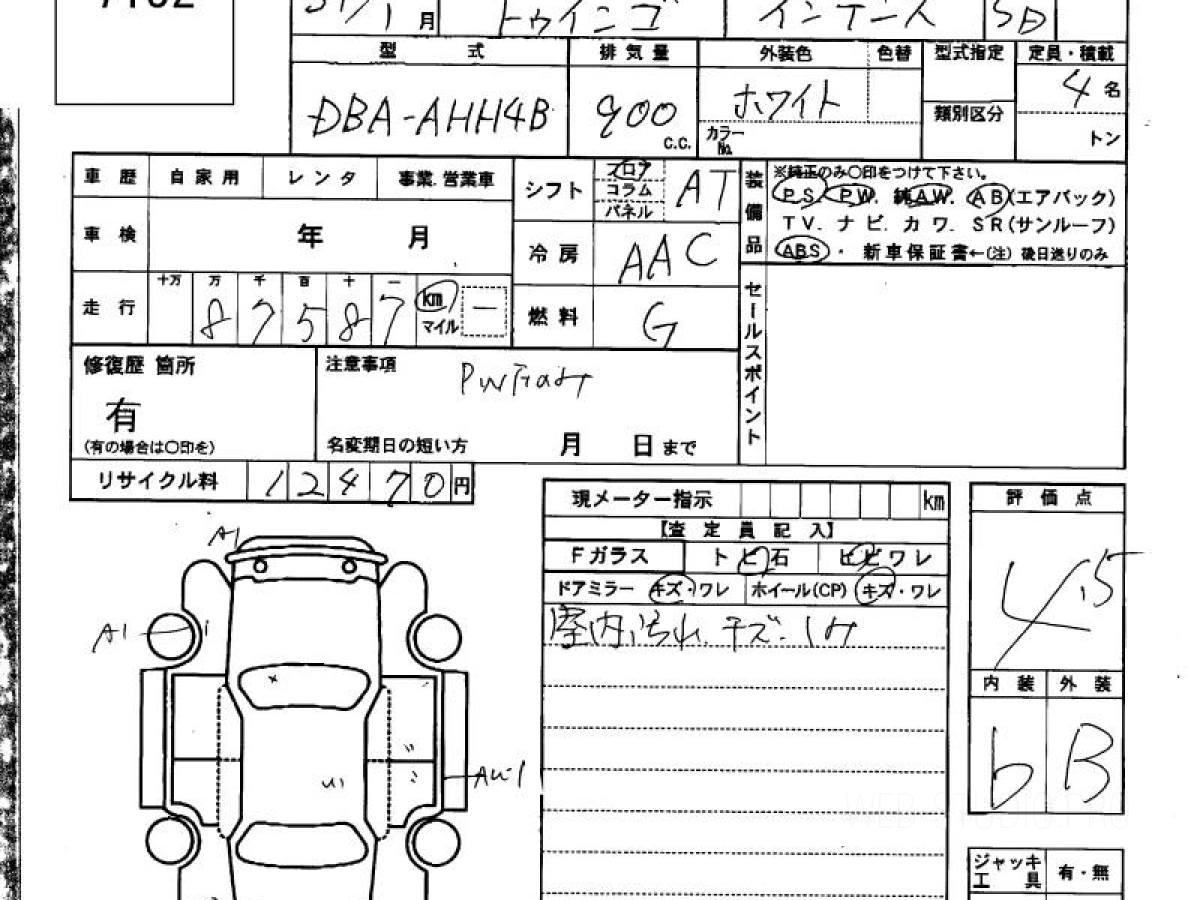 7102
31/1月 トゥインゴ インテンス 5D
型式 排気量 外装色 色替 型式指定 定員・積載
DBA-AHH4B 900 c.c. ホワイト 4名
カラーNo. 類別区分 トン
車歴 自家用 レンタ 事業.営業車
シフト フロア コラム パネル AT
装備品 ※純正のみ〇印をつけて下さい。
PS. PW. 純AW. AB(エアバック)
TV. ナビ. カワ. SR(サンルーフ)
ABS ・ 新車保証書←(注) 後日送りのみ
車検 年 月
冷房 AAC
走行 十万 万 千 百 十 一
87587 km マイル
燃料 G
セールスポイント
修復歴 箇所
有
(有の場合は〇印を)
注意事項
名変期日の短い方 月 日まで
リサイクル料 12470円
現メーター指示 km
【査定員記入】
Fガラス トビ石 ヒビワレ
ドアミラー キズ・ワレ ホイール(CP) キズ・ワレ
室内汚れ.キズ.シミ
評価点
4.5
内装 外装
b B
ジャッキ 工具 有・無
A1
A1
AU-1